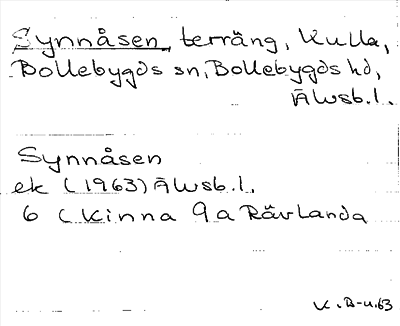 Synnåsen, terräng, Kulla,
Bollebygds sn, Bollebygds hd,
Älvsb. l.
Synnåsen
ek (1963) Älvsb. l.
6 Kinna 9a Rävlanda
K. B-n. 63